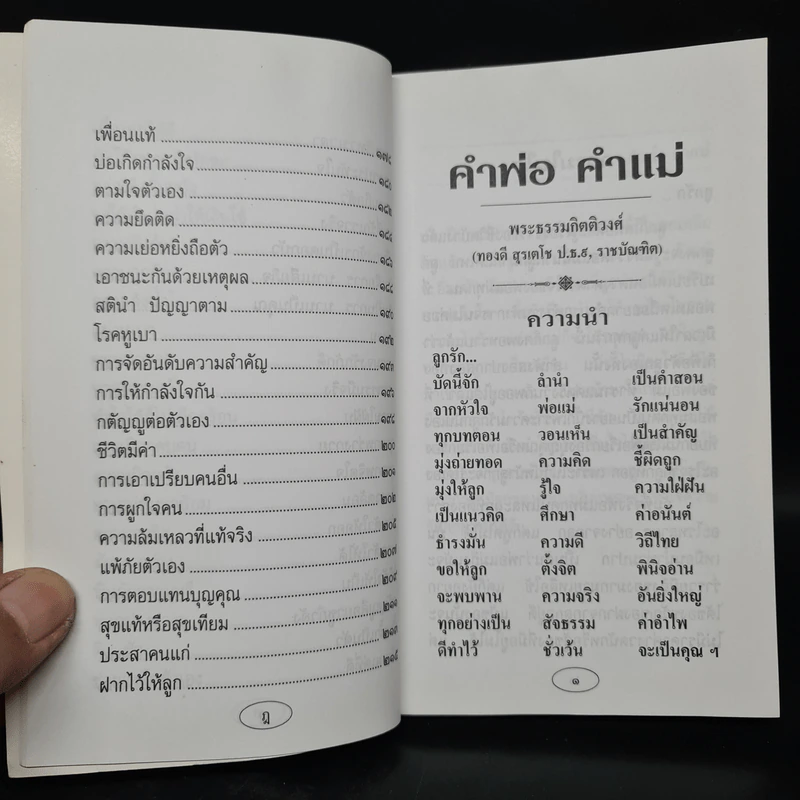 เพื่อนแท้ ๑๗๘
บ่อเกิดกำลังใจ ๑๘๐
ตามใจตัวเอง ๑๘๒
ความยึดติด ๑๘๔
ความเย่อหยิ่งถือตัว ๑๘๖
เอาชนะกันด้วยเหตุผล ๑๘๘
สตินำ ปัญญาตาม ๑๙๐
โรคหูเบา ๑๙๒
การจัดอันดับความสำคัญ ๑๙๓
การให้กำลังใจกัน ๑๙๖
กตัญญูต่อตัวเอง ๑๙๘
ชีวิตมีค่า ๒๐๐
การเอาเปรียบคนอื่น ๒๐๑
การผูกใจคน ๒๐๒
ความล้มเหลวที่แท้จริง ๒๐๕
แพ้ภัยตัวเอง ๒๐๗
การตอบแทนบุญคุณ ๒๐๙
สุขแท้หรือสุขเทียม ๒๑๑
ประสาคนแก่ ๒๑๓
ฝากไว้ให้ลูก ๒๑๕
ฎ
คำพ่อ คำแม่
พระธรรมกิตติวงศ์
(ทองดี สุรเตโช ป.ธ.๙, ราชบัณฑิต)
ความนำ
ลูกรัก...
บัดนี้จัก ลำนำ เป็นคำสอน
จากหัวใจ พ่อแม่ รักแน่นอน
ทุกบทตอน วอนเห็น เป็นสำคัญ
มุ่งถ่ายทอด ความคิด ชี้ผิดถูก
มุ่งให้ลูก รู้ใจ ความใฝ่ฝัน
เป็นแนวคิด ศึกษา ค่าอนันต์
ธำรงมั่น ความดี วิถีไทย
ขอให้ลูก ตั้งจิต พินิจอ่าน
จะพบพาน ความจริง อันยิ่งใหญ่
ทุกอย่างเป็น สัจธรรม ค่าอำไพ
ดีทำไว้ ชั่วเว้น จะเป็นคุณ ฯ
๑